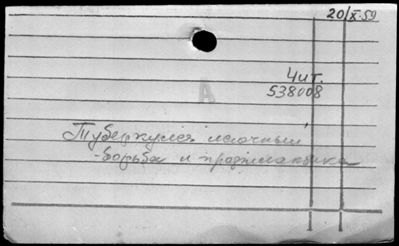 20/X-59
Чит.
538008
А
Туберкулез легочный
-борьба и профилактика